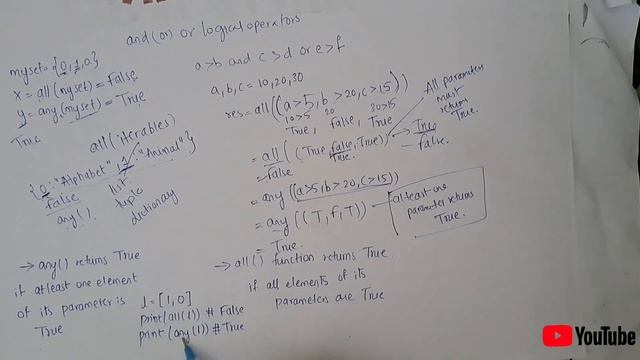 and (or) or logical operators
myset = {0,1,0}
x = all(myset) = False
y = any(myset) = True
True
all(iterables)
{0:"Alphabet", 1:"Animal"}
false
any().
list
tuple
dictionary
→ any() returns True
if atleast one element
of its parameter is
True
l = [1,0]
print(all(l)) # False
print(any(l)) # True
a>b and c>d or e>f
a,b,c = 10,20,30
res = all((a>5, b>20, c>15))
10>5 20 30>15
True, false, True
= all((True, false, True))
True
False
= any((a>5, b>20, c>15))
= any((T, f, T))
= True.
→ all() function returns True
if all elements of its
parameters are True
All parameters
must
return
True.
True
false.
atleast one
parameter returns
True.
YouTube